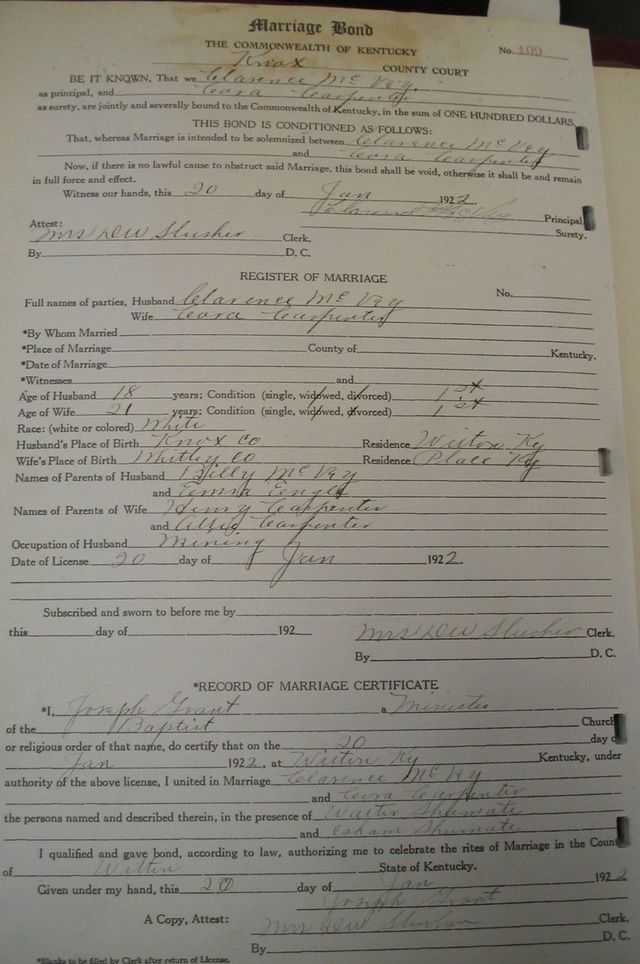 Marriage Bond
THE COMMONWEALTH OF KENTUCKY No. 109
Knox COUNTY COURT
BE IT KNOWN, That we Clarence McVey
as principal, and Cora Carpenter
as surety, are jointly and severally bound to the Commonwealth of Kentucky, in the sum of ONE HUNDRED DOLLARS.
THIS BOND IS CONDITIONED AS FOLLOWS:
That, whereas Marriage is intended to be solemnized between Clarence McVey
and Cora Carpenter
Now, if there is no lawful cause to obstruct said Marriage, this bond shall be void, otherwise it shall be and remain
in full force and effect.
Witness our hands, this 20 day of Jan 1922.
Clarence McVey Principal
Attest: Surety.
Mrs DW Slusher Clerk.
By D. C.
REGISTER OF MARRIAGE
No.
Full names of parties, Husband Clarence McVey
Wife Cora Carpenter
*By Whom Married
*Place of Marriage County of Kentucky.
*Date of Marriage
*Witnesses and
Age of Husband 18 years; Condition (single, widowed, divorced) 1st
Age of Wife 21 years; Condition (single, widowed, divorced) 1st
Race: (white or colored) White
Husband's Place of Birth Knox Co Residence Wilton Ky
Wife's Place of Birth Whitley Co Residence Place Ky
Names of Parents of Husband Billy McVey
and Emma
Names of Parents of Wife Henry Carpenter
and Carpenter
Occupation of Husband Mining
Date of License 20 day of Jan 1922.
Subscribed and sworn to before me by
this day of 192 Mrs DW Slusher Clerk.
By D. C.
*RECORD OF MARRIAGE CERTIFICATE
*I, Joseph Grant a Minister
of the Baptist Church
or religious order of that name, do certify that on the 20 day o
Jan 1922, at Wilton Ky Kentucky, under
authority of the above license, I united in Marriage Clarence McVey
and Cora Carpenter
the persons named and described therein, in the presence of Walter Shumate
and Isham Shumate
I qualified and gave bond, according to law, authorizing me to celebrate the rites of Marriage in the Count
of Wilton State of Kentucky.
Given under my hand, this 20 day of Jan 1922
Joseph Grant
A Copy, Attest: Mrs DW Slusher Clerk.
By D. C.
*Blanks to be filled by Clerk after return of License.